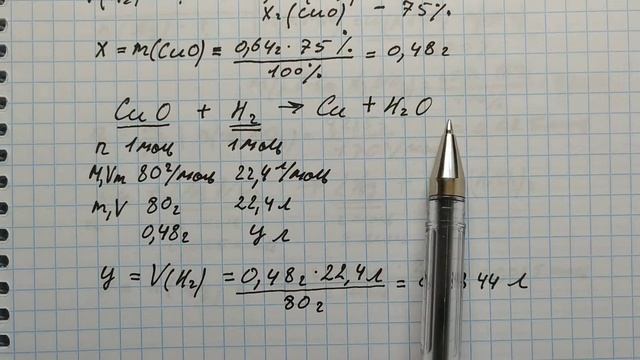 x₂(CuO) - 75%
x = m(CuO) = 0,64г · 75% / 100% = 0,48г
CuO + H₂ → Cu + H₂O
n 1моль 1моль
M,Vm 80г/моль 22,4л/моль
m,V 80г 22,4л
0,48г y л
y = V(H₂) = 0,48г · 22,4л / 80г = 44 л